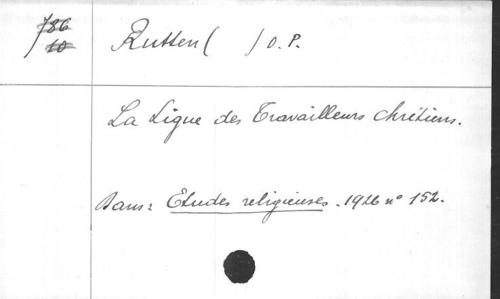 786
10
Rutten ( ) O. P.
La Ligue des Travailleurs Chrétiens.
Dans: Etudes religieuses. 1926 n° 152.